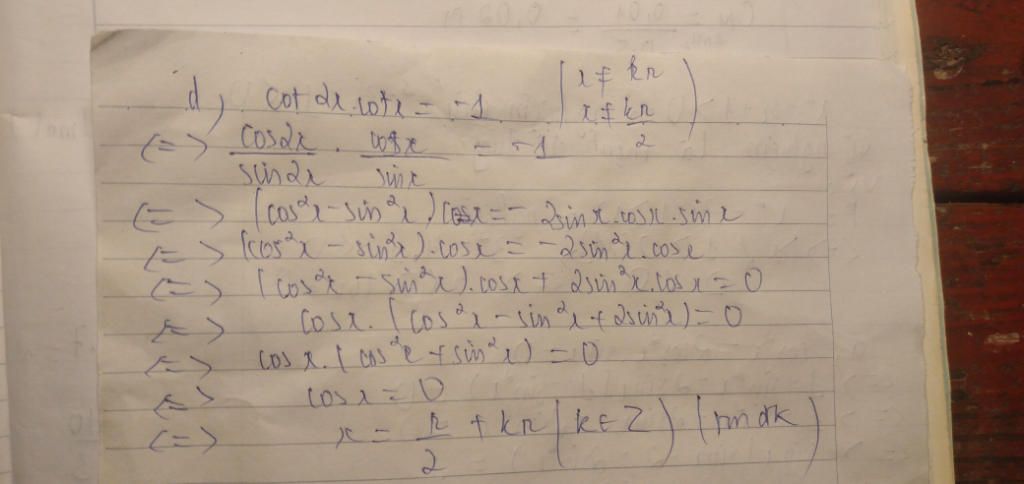 d, cot 2x.cotx = -1 (x ≠ kπ
x ≠ kπ/2)
<=> cos2x/sin2x . cosx/sinx = -1
<=> (cos²x - sin²x) cosx = - 2sinx.cosx.sinx
<=> (cos²x - sin²x).cosx = -2sin²x.cosx
<=> (cos²x - sin²x).cosx + 2sin²x.cosx = 0
<=> cosx.(cos²x - sin²x + 2sin²x) = 0
<=> cosx.(cos²x + sin²x) = 0
<=> cosx = 0
<=> x = π/2 + kπ (k ∈ Z) (tmđk)